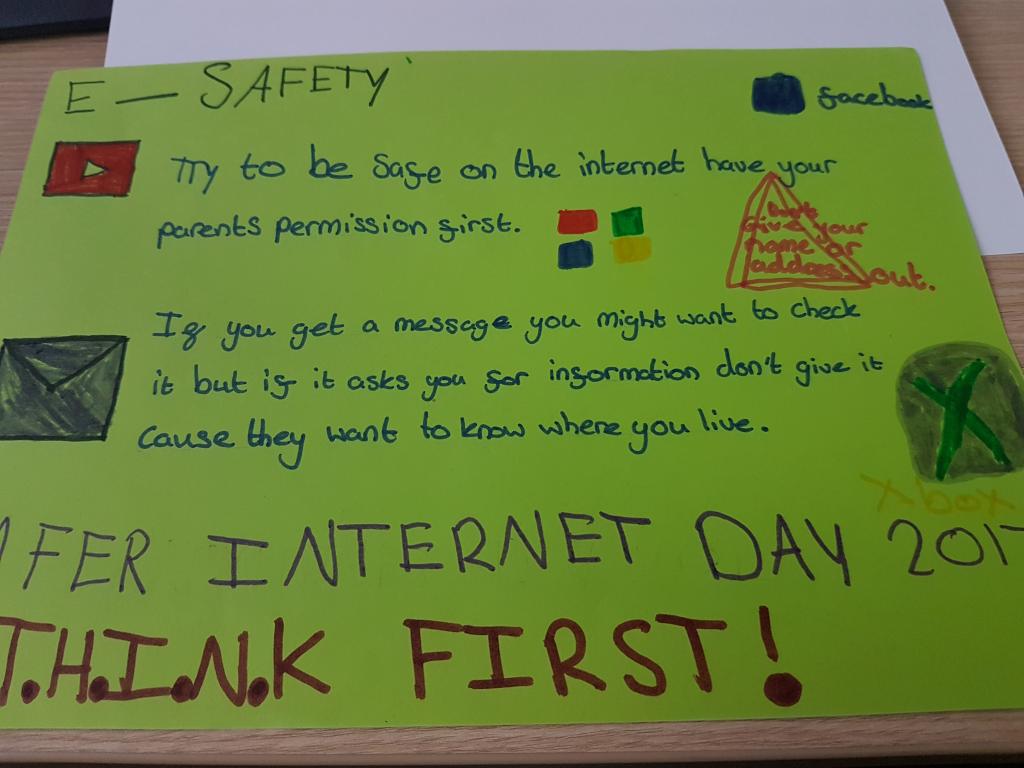 E — SAFETY
facebook
Try to be safe on the internet have your
parents permission first.
give your
name or
address out.
If you get a message you might want to check
it but if it asks you for information don't give it
cause they want to know where you live.
X
Xbox
AFER INTERNET DAY 201
T.H.I.N.K FIRST!